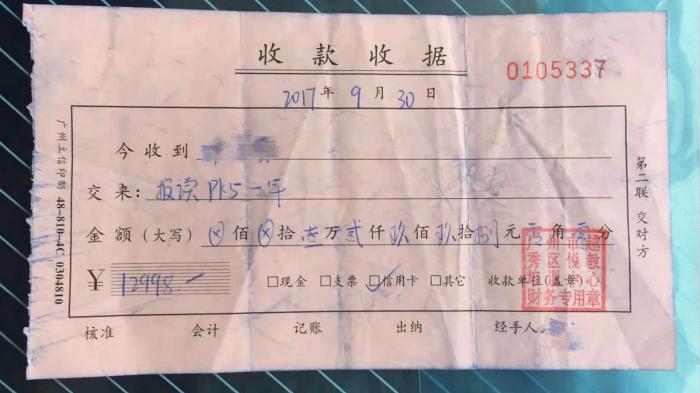 收款收据
0105337
2017年 9月 30日
今收到
交来：报读PK5一年
金额（大写）ⓧ佰ⓧ拾壹万贰仟玖佰玖拾捌元零角零分
¥ 12998
□现金 □支票 ☑信用卡 □其它 收款单位（盖章）
核准 会计 记账 出纳 经手人
广州立信印制 48-810-4C 0304810
第二联 交对方
广州市越
秀区悦教
培训中心
财务专用章